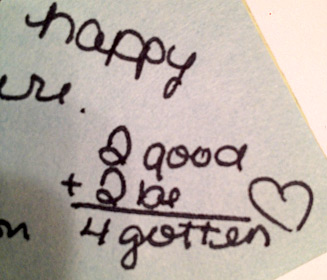 happy
ere.
2 good
+ 2 be
4 gotten
on